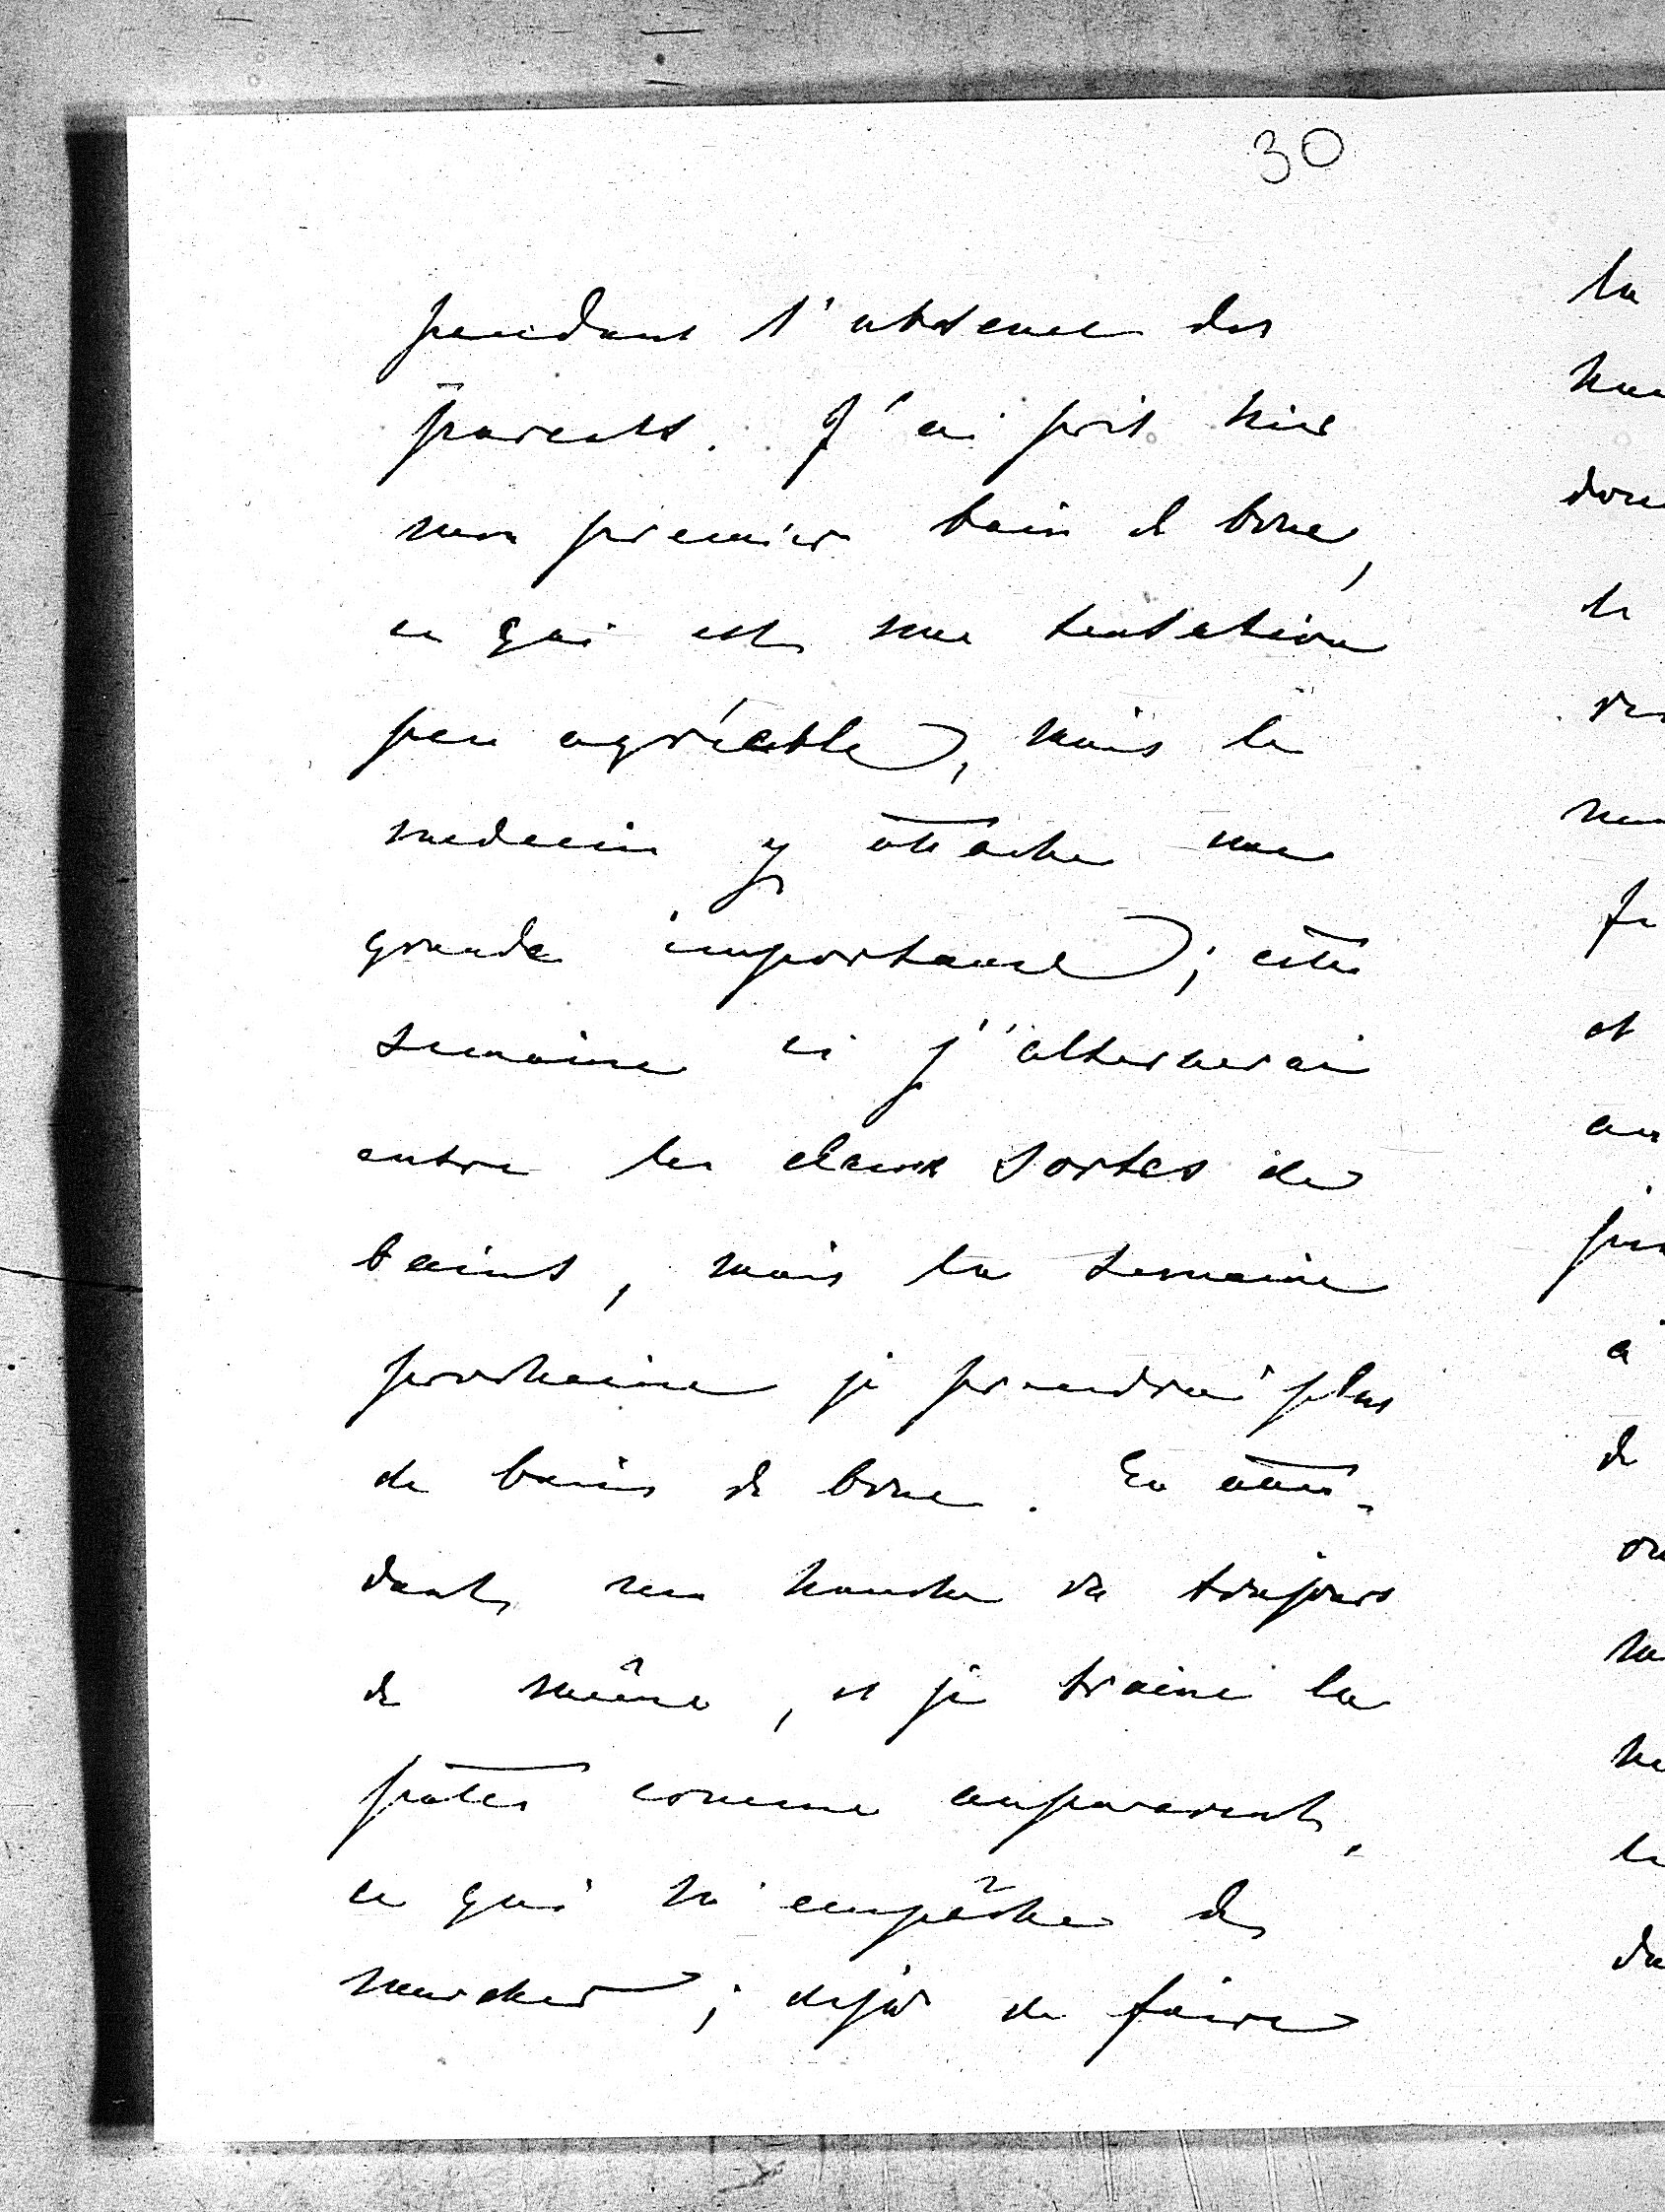 30
pendant l'absence des
parents. J'ai pris hier
mon premier bain de boue,
ce qui est une sensation
peu agréable, mais le
medecin y attache une
grande importance; cette
semaine ci j'alternerai
entre les deux sortes de
bains, mais la semaine
prochaine je prendrai plus
de bains de boue. En atten-
dant, ma hanche va toujours
de même, et je traine la
patte comme auparavant,
ce qui m'empêche de
marcher; déjà de faire
la
de
Je
et
à
de